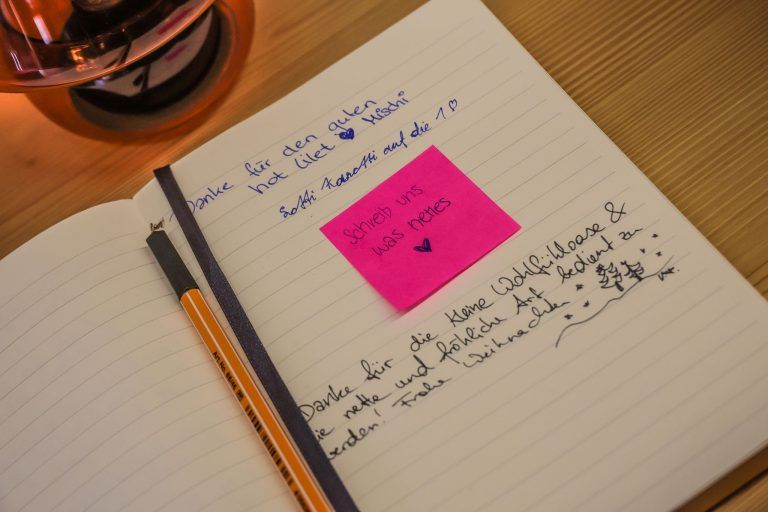 Danke für den guten
hot lilet ♥ Mischi
auf die 1 ♡
Schreib uns
was nettes
♥
Danke für die kleine Wohlfühloase &
die nette und fröhliche Art bedient zu
werden! Frohe Weihnachten